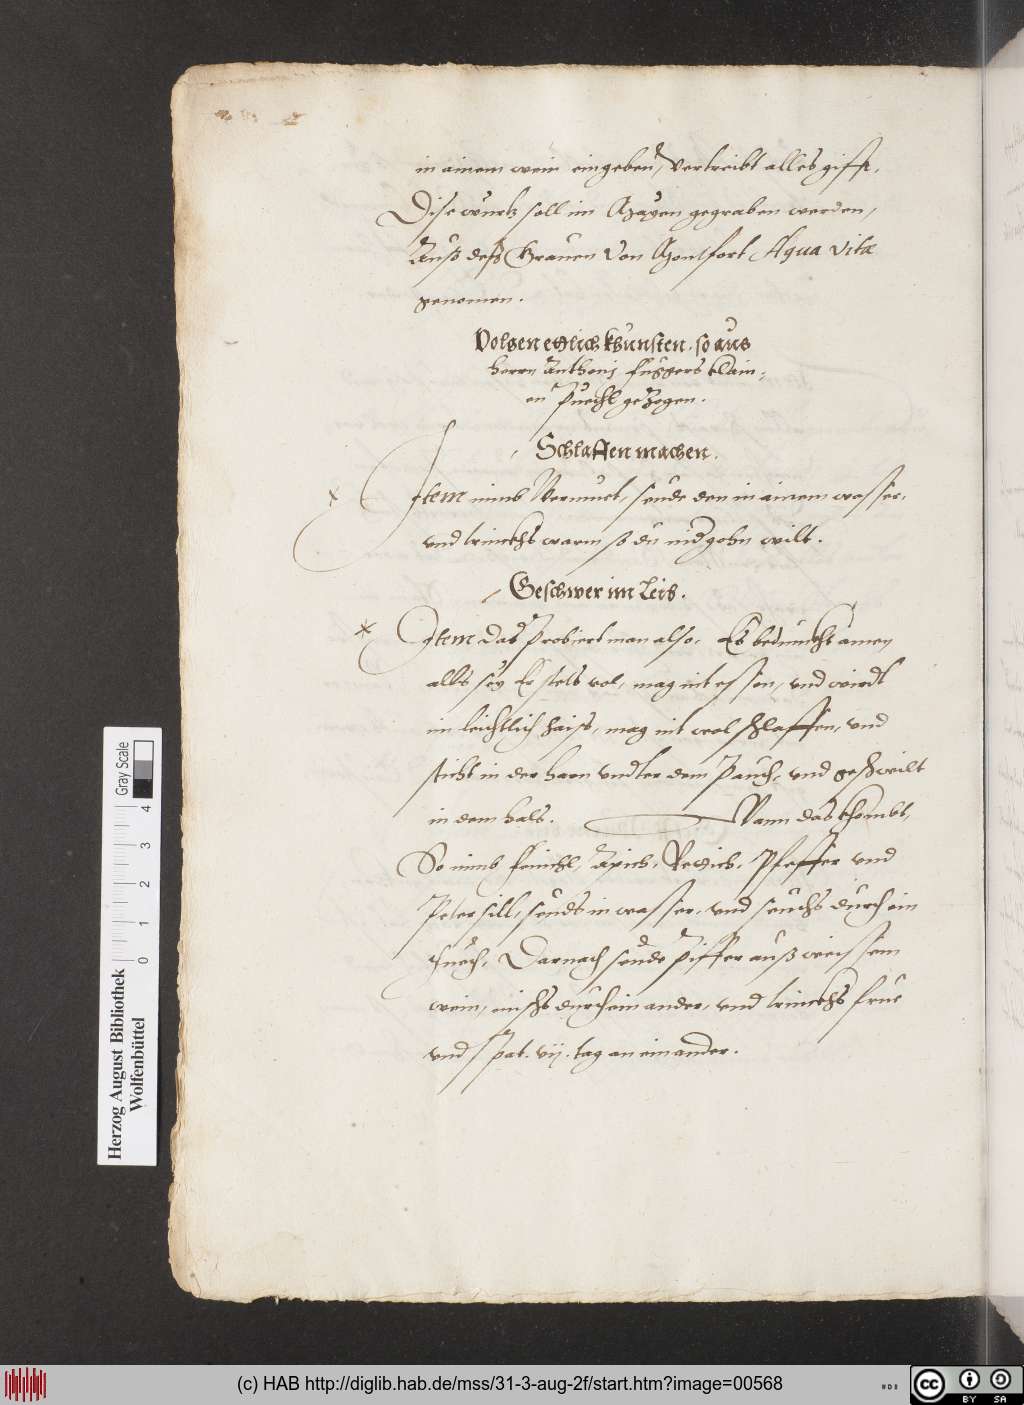 in ainem wein eingeben, vertreibt alles gifft.
Dise wurtz soll im Mayen gegraben werden,
Auß deß Grauen von Montfort Aqua vitæ
genomen.
Volgen etlich khunsten. so aus
herrn Anthonj Fuggers klain=
en Puechl geZogen.
Schlaffen machen.
Item nimb Wermuet, seude den in ainem wasser,
und trinckhs warm so du nider gehn wilt.
Geschwer im Leib.
Item das Probiert man also. Es bedunckht ainen
alls sey Er stets vol, mag nit essen, und wirdt
im leichtlich haiß, mag nit wol schlaffen, und
sticht in der harn undter dem Pauch, und geschwilt
in dem hals. Wann das khombt,
So nimb Fenichl, Apich, Rettich, Pfeffer und
Petersill, seuds in wasser, und seuchs durch ein
tuech, Darnach seude Piffer auß weissem
wein, mischs durch ein ander, und trinckhs frue
und spat. vij. tag an einander.
Gray Scale
0 1 2 3 4
Herzog August Bibliothek
Wolfenbüttel
(c) HAB http://diglib.hab.de/mss/31-3-aug-2f/start.htm?image=00568
cc BY SA